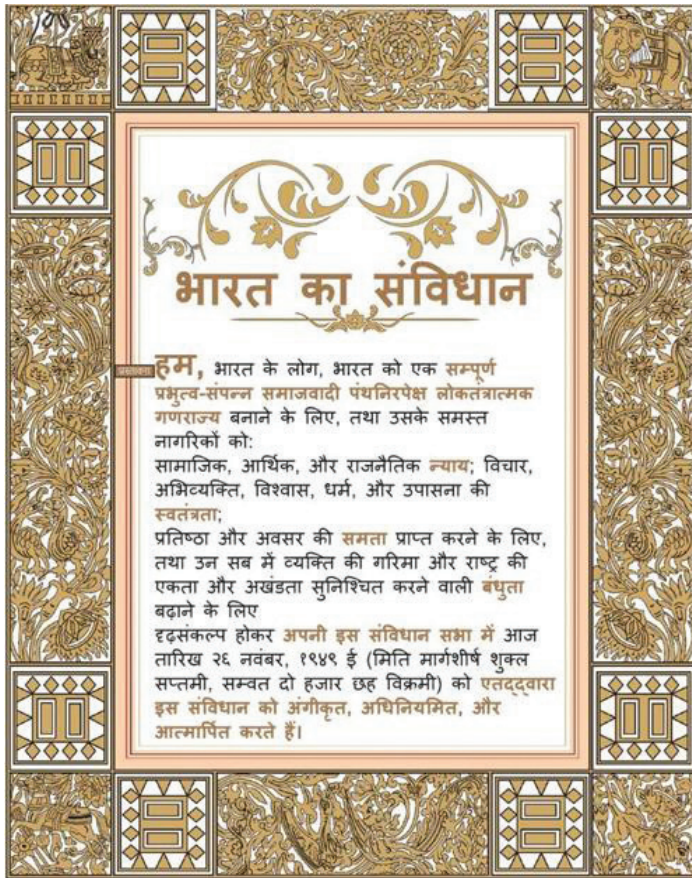 भारत का संविधान
प्रस्तावना
हम, भारत के लोग, भारत को एक सम्पूर्ण
प्रभुत्व-संपन्न समाजवादी पंथनिरपेक्ष लोकतंत्रात्मक
गणराज्य बनाने के लिए, तथा उसके समस्त
नागरिकों को:
सामाजिक, आर्थिक, और राजनैतिक न्याय; विचार,
अभिव्यक्ति, विश्वास, धर्म, और उपासना की
स्वतंत्रता;
प्रतिष्ठा और अवसर की समता प्राप्त करने के लिए,
तथा उन सब में व्यक्ति की गरिमा और राष्ट्र की
एकता और अखंडता सुनिश्चित करने वाली बंधुता
बढ़ाने के लिए
दृढ़संकल्प होकर अपनी इस संविधान सभा में आज
तारिख २६ नवंबर, १९४९ ई (मिति मार्गशीर्ष शुक्ल
सप्तमी, सम्वत दो हजार छह विक्रमी) को एतद्द्वारा
इस संविधान को अंगीकृत, अधिनियमित, और
आत्मार्पित करते हैं।